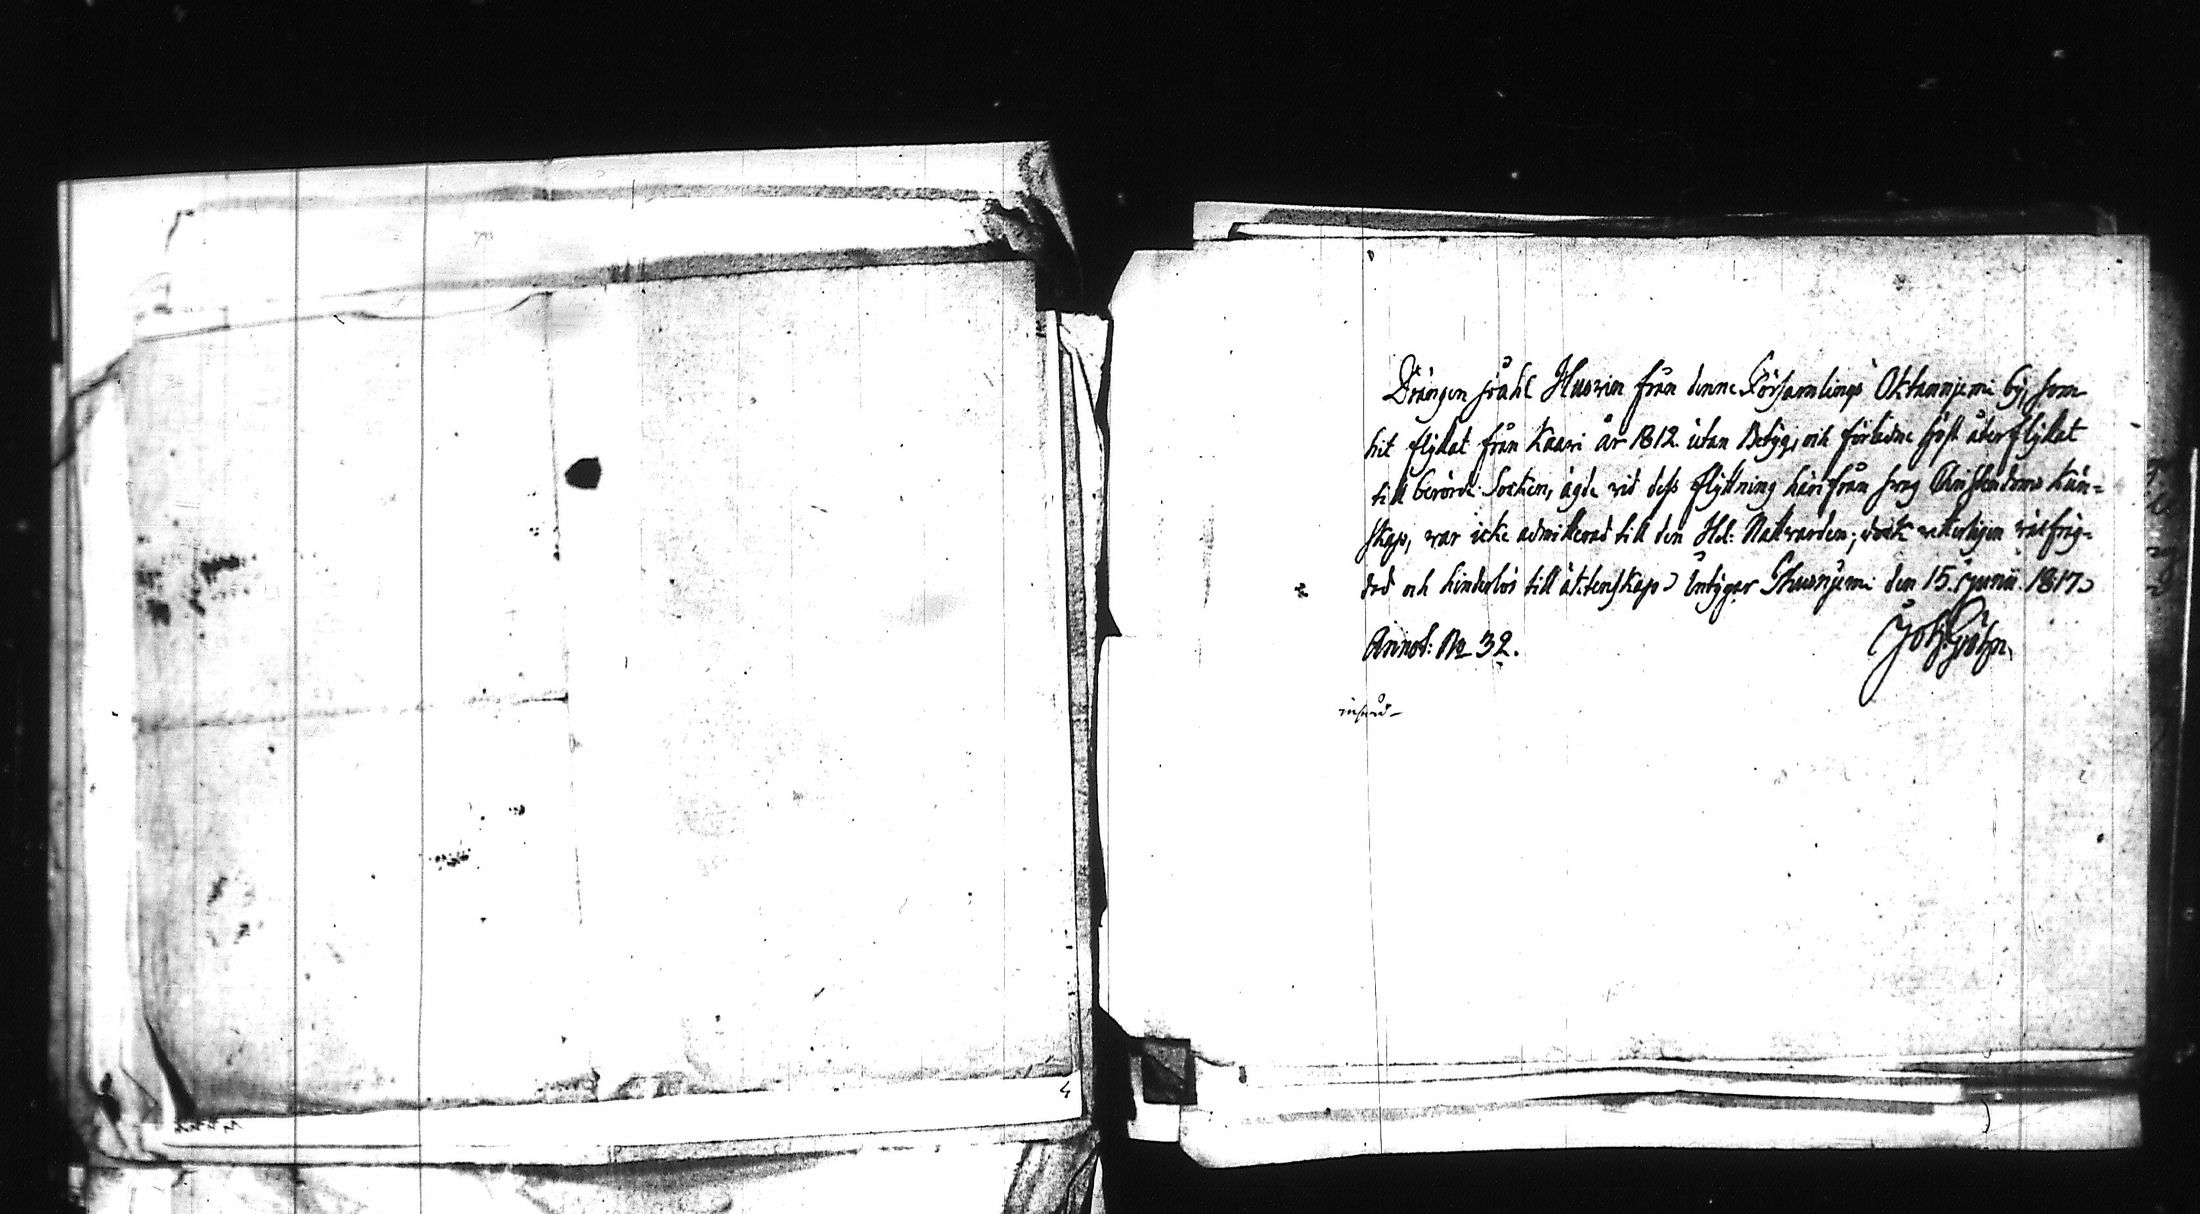 Drängen Påhl Husrin från denne Församlings Oktanniemi by, som
hit flyttat från Kaavi år 1812 utan Betyg, och förledne höst återflyttat
till berörde Socken, ägde vid dess flyttning härifrån swag Christendoms kun-
skap, var icke admitterad till den Hel: Nattvarden; dock veterligen wälfräg-
dad och hinderlös till äktenskap; Intygar den 15. Junii 1817.
Annot: No 32. Joh:
införd
4